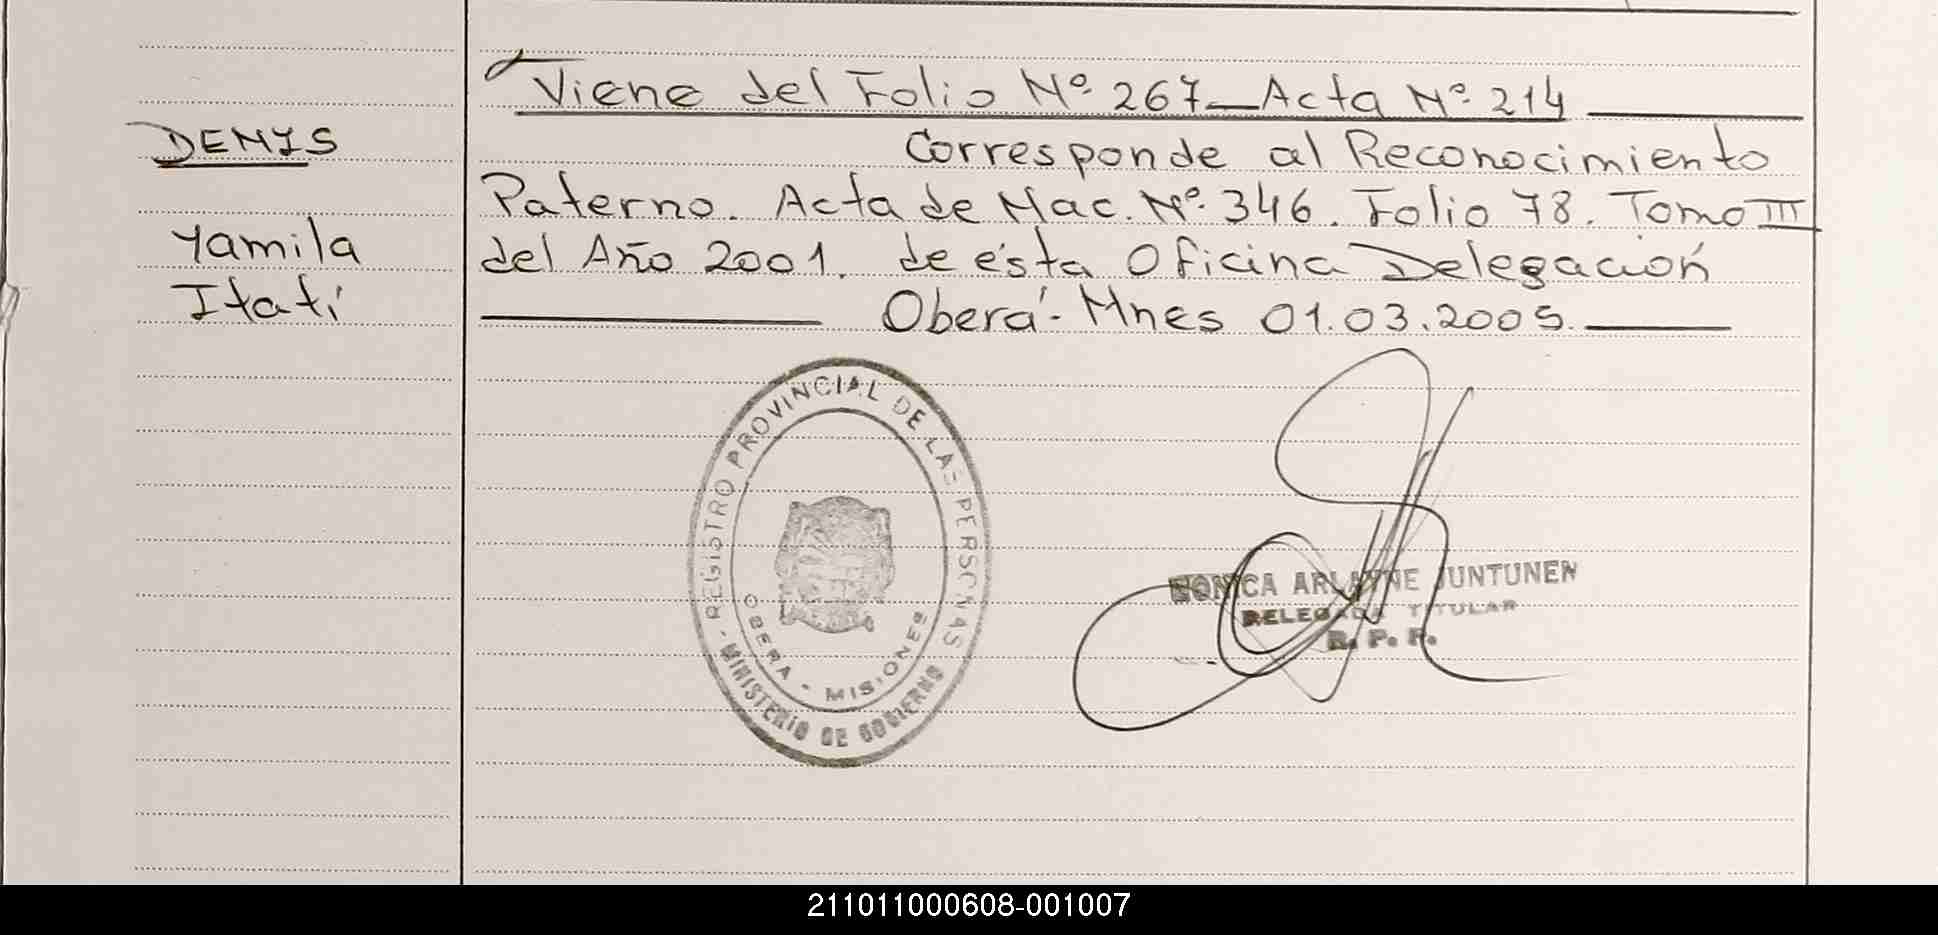 Viene del Folio Nº 267 - Acta Nº 214
DENIS
Corresponde al Reconocimiento
Paterno. Acta de Nac. Nº 346. Folio 78. Tomo III
Yamila
del Año 2001. de ésta Oficina Delegación
Itatí
Oberá - Mnes 01.03.2005.
REGISTRO PROVINCIAL DE LAS PERSONAS
- MINISTERIO DE GOBIERNO
OBERA - MISIONES
MONICA ARLAYNE JUNTUNEN
DELEGADA TITULAR
R. P. P.
211011000608-001007